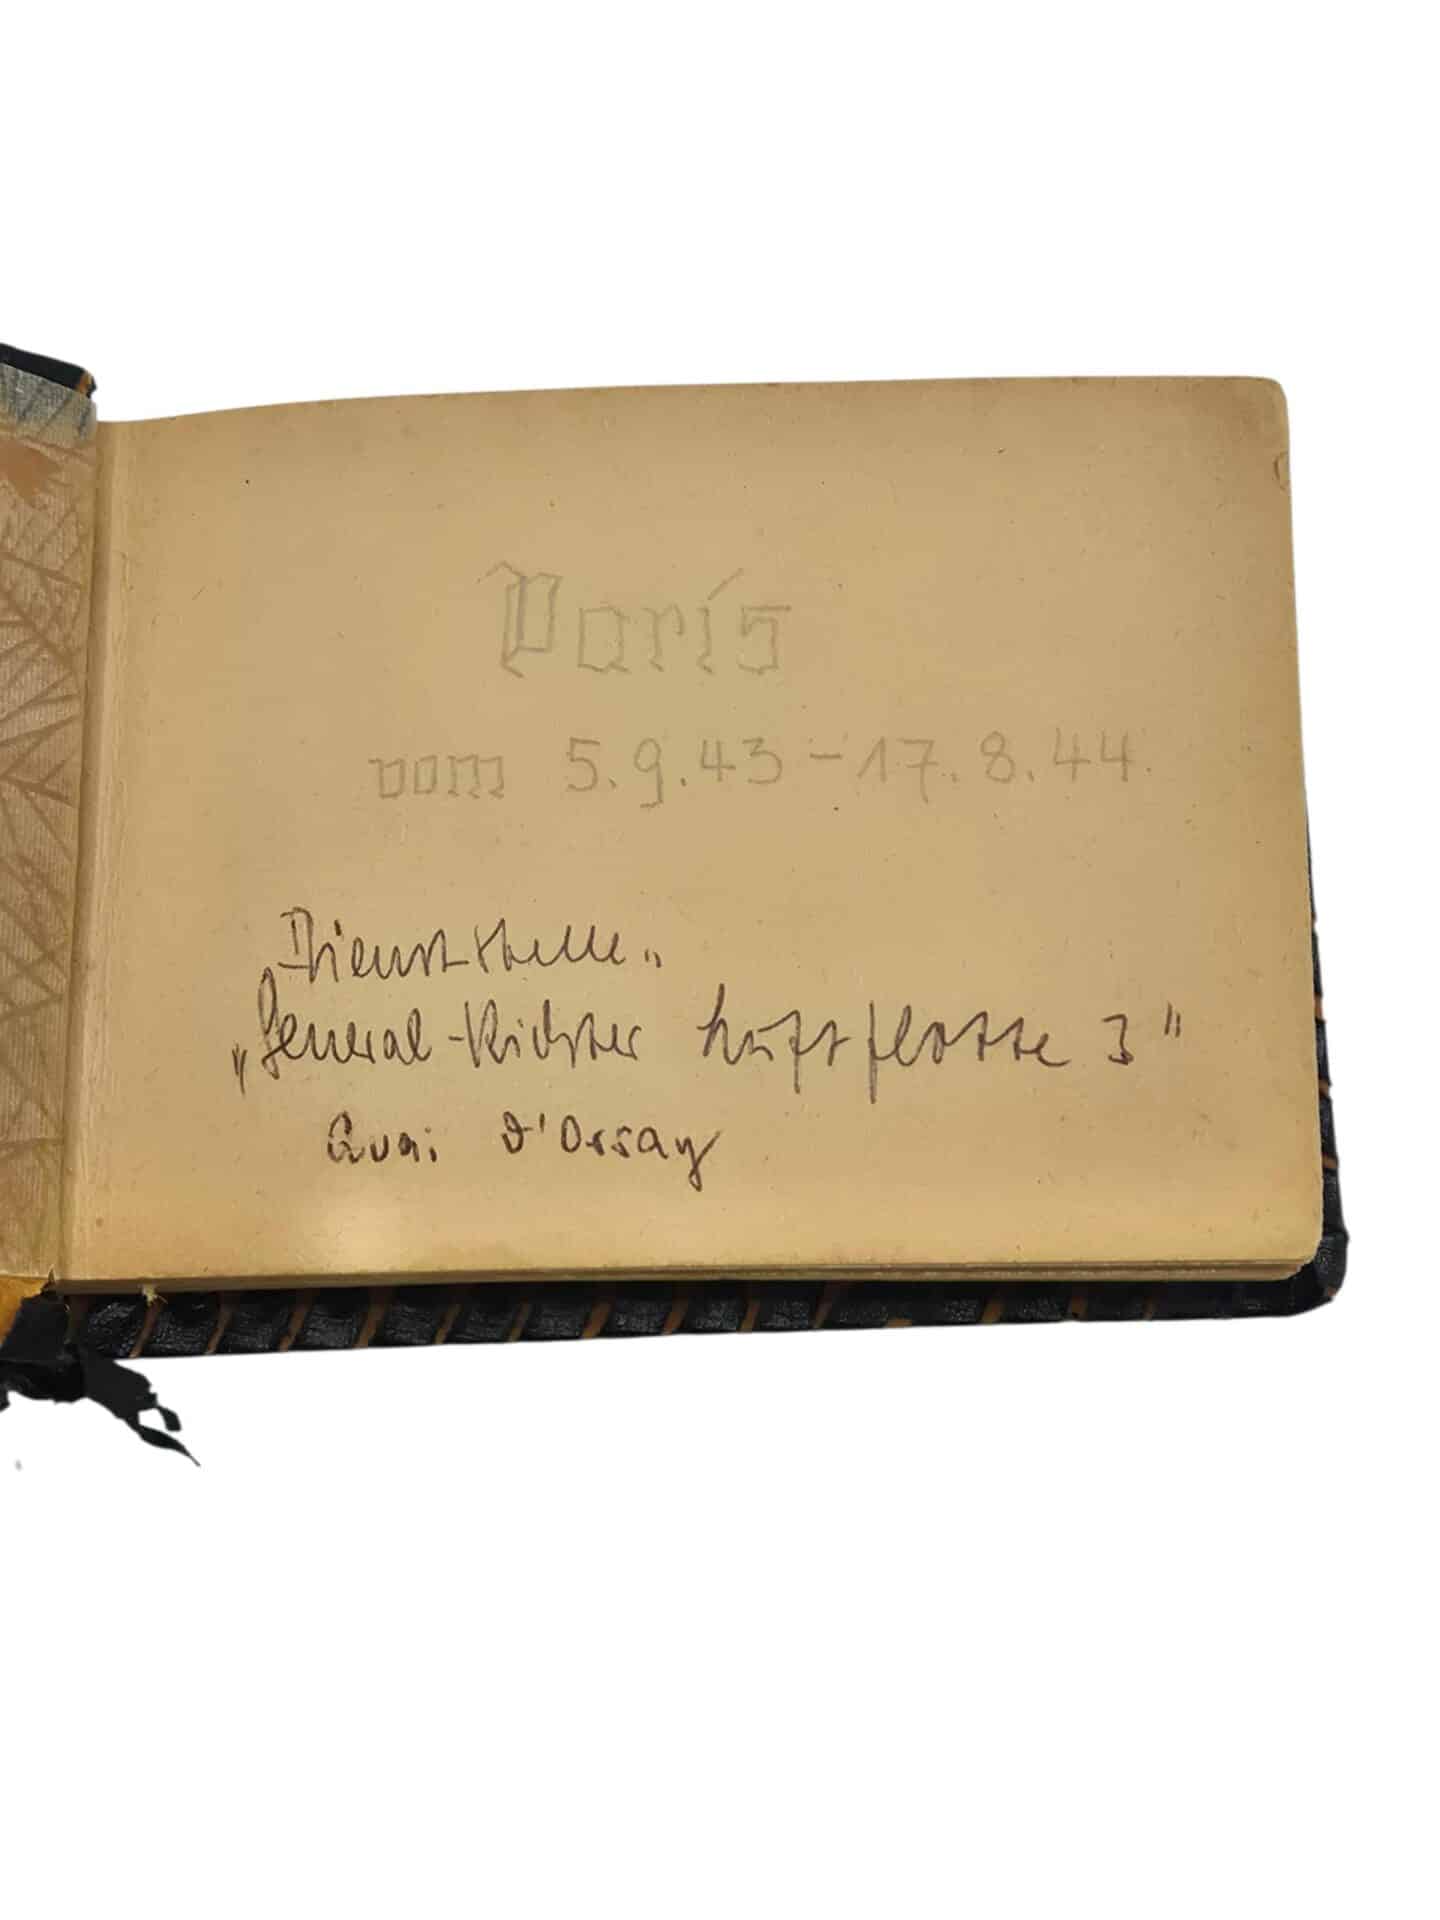 Paris
vom 5.9.43 – 17.8.44.
Dienststelle„
„General-Richter Luftflotte 3"
Quai d'Orsay